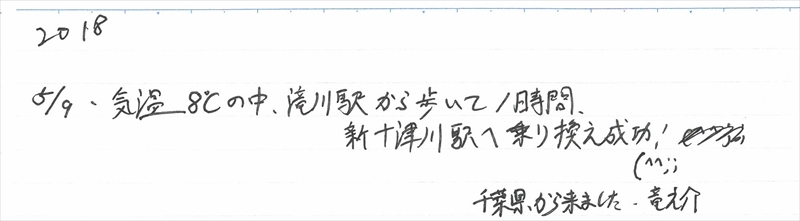 2018
5/9・気温 8℃の中、滝川駅から歩いて1時間、
新十津川駅へ乗り換え成功!
(^^;;
千葉県から来ました・竜之介